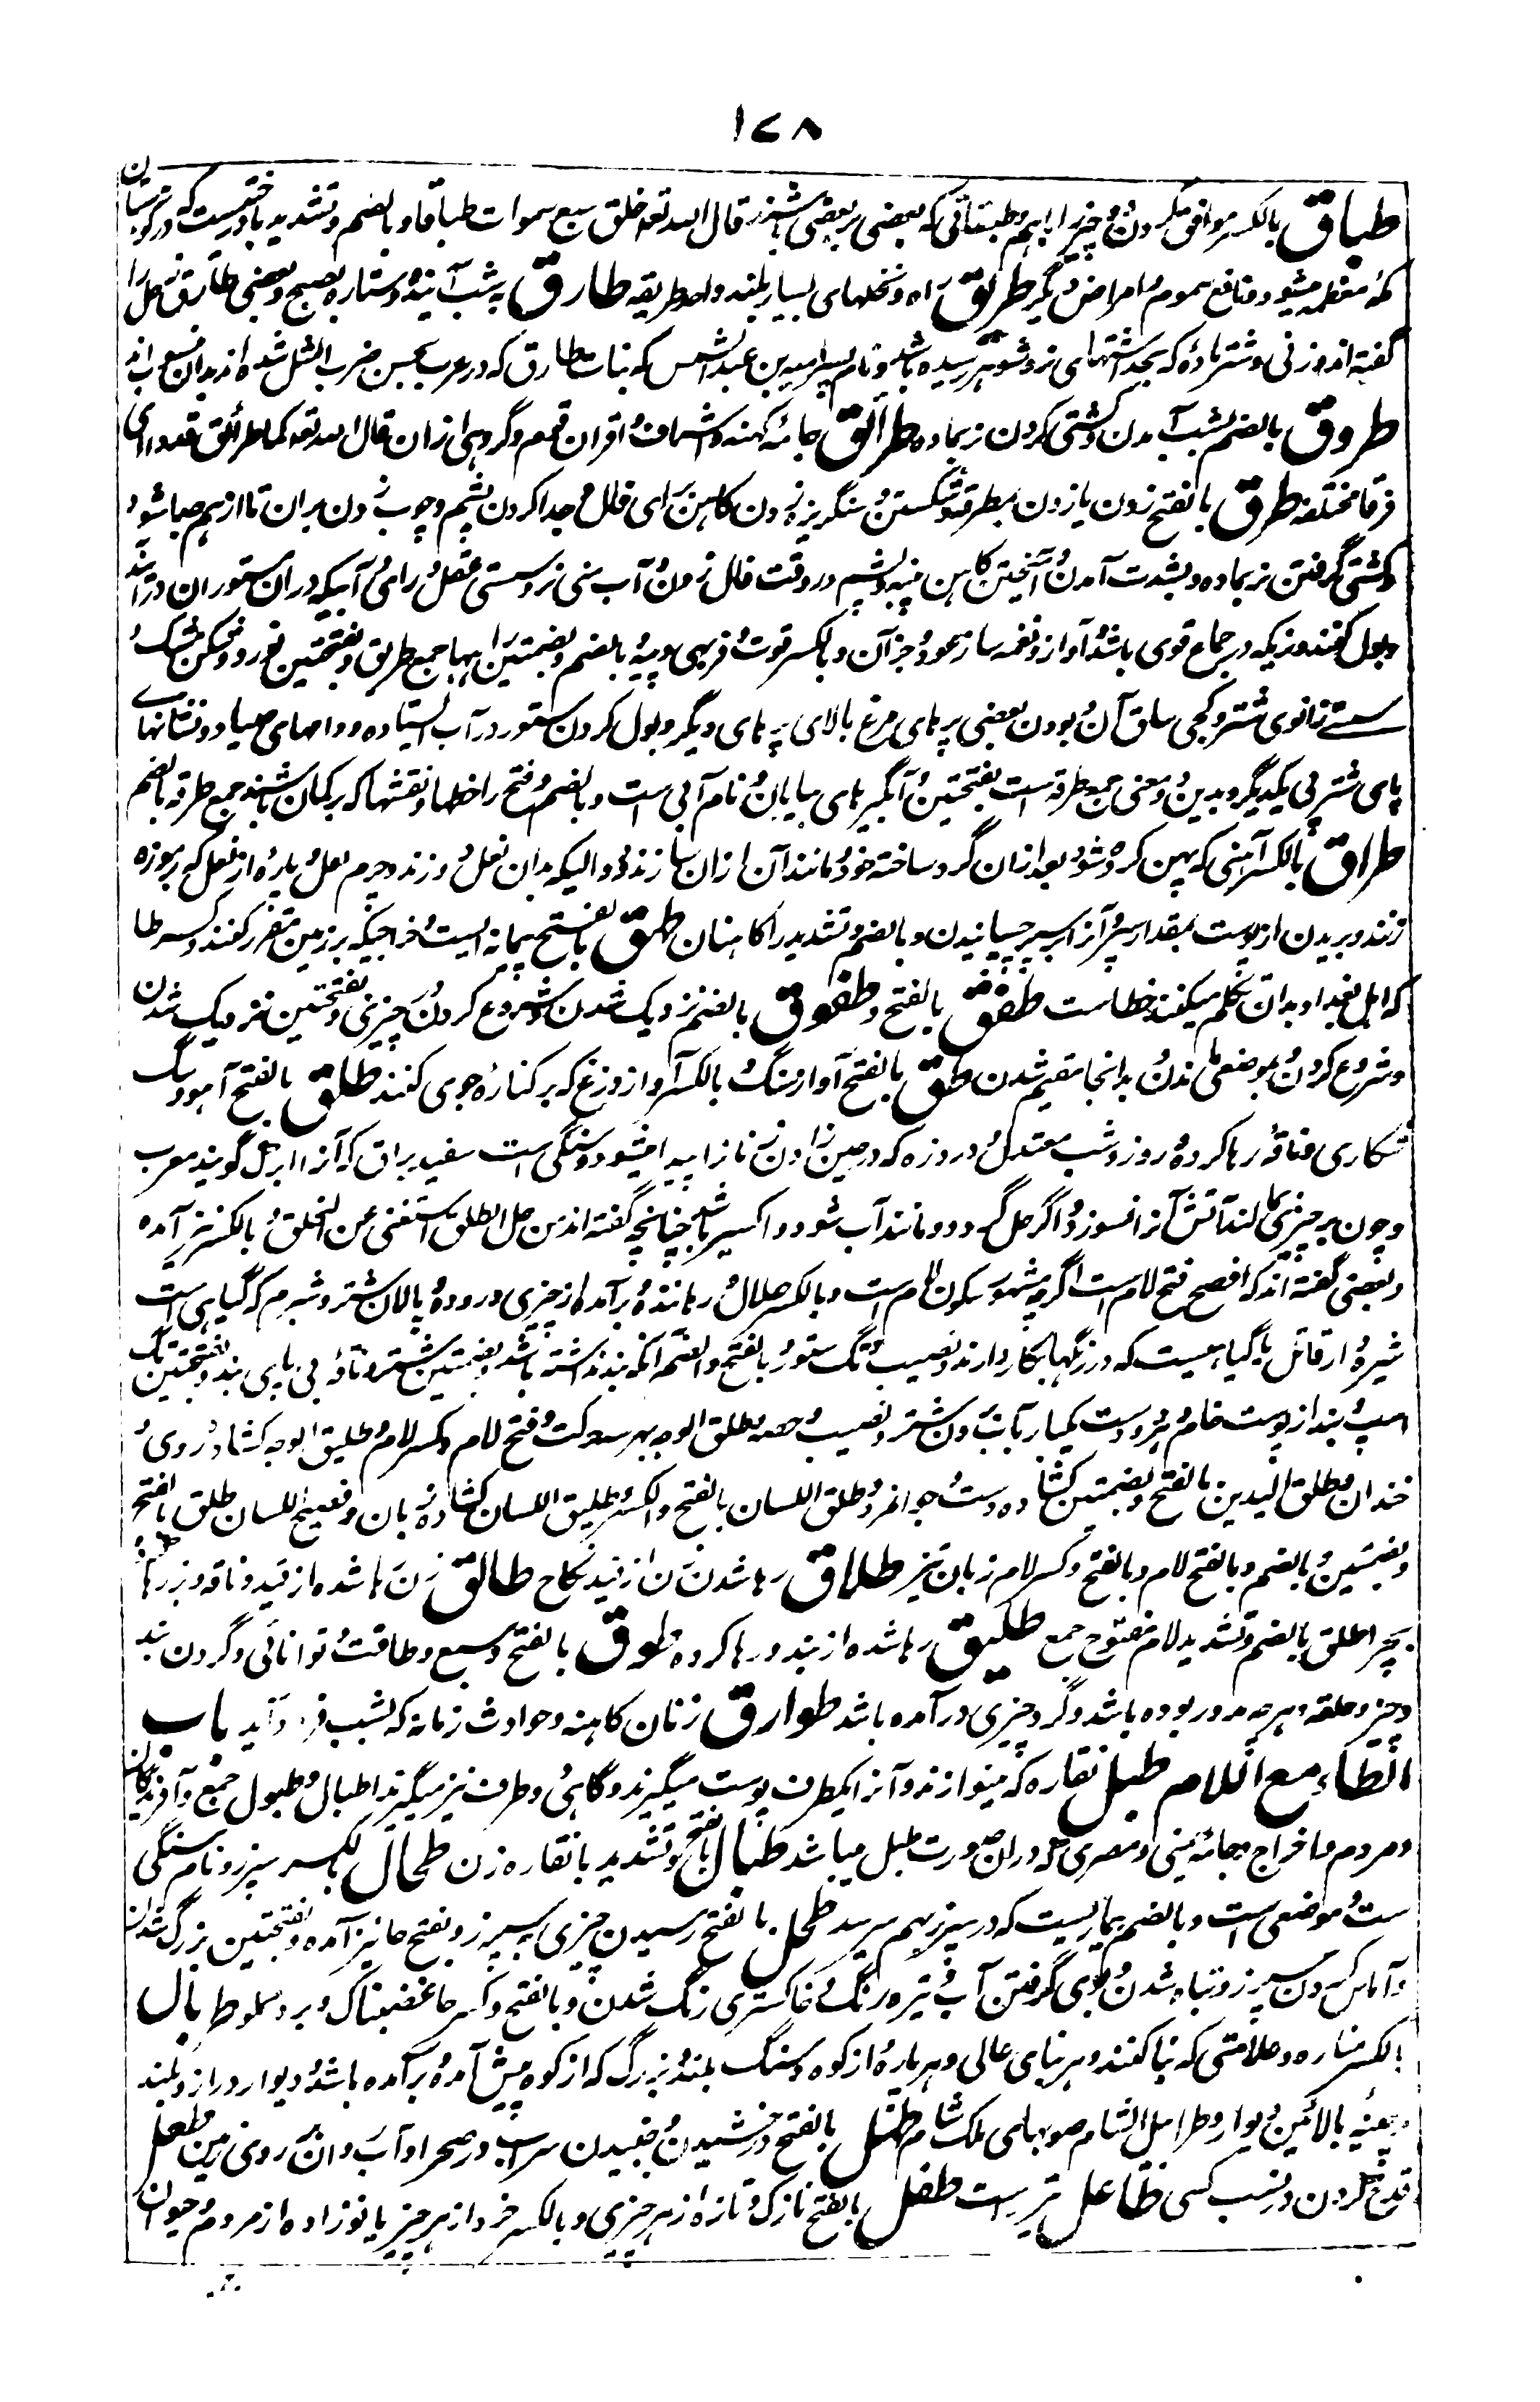 ۱۷۸
طباق بالکسر موافق کردن دو چیز را باهم و طبقاتی که بعضی بر بعضی باشند قال الله تعه خلق سبع سموات طباقا و بالضم و تشدید با درختیست که در کوهستان
مکۀ معظمه میشود و نافع سموم و امراض دیگر طریق راه و نخلهای بسیار بلند واحد طریقه طارق بشب آینده و ستاره صبح و بعضی طارق زحل را
گفته اند و زنی و شتر ماده که بحد اشتهای نر و شوهر رسیده باشد و نام پسر امیه بن عبد الشمس که بنات طارق که در عرب بحسن ضرب المثل شده اند بدان منسوب اند
طروق بالضم بشب آمدن و کشتی کردن نر بماده طرائق جامۀ کهنه و اشراف و اقران قوم و گروهی از ان قال الله تعه کنا طرائق قددا ای
فرقا مختلفه طرق بالفتح زدن یا زدن بمطرقه و شکستن و سنگریزه زدن کاهن برای فال و جدا کردن پشم و چوب زدن بران تا از هم جدا شود
و کشتی گرفتن نر بماده و بشدت آمدن و آمیختن کاهن پنبه و پشم در وقت فال زدن و آب منی نر و سستی عقل و رای و آبیکه دران ستوران در آیند
و بول کنند و نریکه در جماع قوی باشد و آواز و نغمه ساز عود و جز آن و بالکسر قوت و فربهی و پیه و بالضم و بضمتین راهها جمع طریق و بفتحتین نورد و شکن مشک و
سستے زانوی شتر و کجی ساق آن و بودن بعضی پرهای مرغ بالای پرهای دیگر و بول کردن ستور در آب ایستاده و دامهای صیاد و نشانهاے
پای شتر پی یکدیگر و بدین معنی جمع طرقه است بفتحتین و آبگیرهای بیابان و نام آبی است و بالضم و فتح را خطها و نقشها که بر کمان باشند جمع طرقه بالضم
طراق بالکسر آهنی که پهن کرده شود بعد ازان گرد ساخته خود و مانند آن ازان سازند و دوالیکه بدان نعل دوزند و چرم نعل و پارۀ از نعل که بر موزه
زنند و بریدن از پوست بمقدار سپر و آنرا بر سپر چسپانیدن و بالضم و تشدید را کاهنان طسق بالفتح پیمانه ایست و خراجیکه بر زمین مقرر کنند و کسر طا
که اهل بغداد بدان تکلم میکنند خطاست طفق بالفتح و طفوق بالضم نزدیک شدن و شروع کردن چیزی و بفتحتین نزدیک شدن
و شروع کردن و بموضعی ماندن و بدانجا مقیم شدن طق بالفتح آواز سنگ و بالکسر آواز وزغ که بر کنارۀ جوی کنند طلق بالفتح آهو و سگ
شکاری و ناقۀ رها کرده و روز و شب معتدل و دردزه که در حین زادن زنانرا پیدا میشود و سنگی است سفید براق که آنرا ابرک گویند معرب
و چون بر چیزی مالند آتش آنرا نسوزد و اگر حل گردد و مانند آب شود اکسیر باشد چنانچه گفته اند من حل الطلق استغنی عن الخلق و بالکسر نیز آمده
و بعضی گفته اند که افصح فتح لام است اگرچه مشهور سکون لام است و بالکسر حلال و رهاننده و برآمده از چیزی و رودۀ و پالان شتر و شبرم که گیاهی است
شیره دار قاتل یا گیاهیست که در رنگها بکار دارند و نصیب و تگ ستور و بالفتح و الضم آنکه بند نداشته باشد و بضمتین شتر و ناقۀ بی پای بند و بفتحتین تگ
اسپ و بند از پوست خام و هر دو دست یکبار تاب دادن شتر و نصیب و حصه و طلق الوجه بهر سه حرکت و فتح لام و کسر لام و طلیق الوجه کشاده روی و
خندان و طلق الیدین بالفتح و بضمتین کشاده دست و جوانمرد و طلق اللسان بالفتح و الکسر و طلیق اللسان کشاده زبان و فصیح اللسان طلق بالفتح
و بضمتین و بالضم و بالفتح لام و بالفتح و کسر لام زبان تیز طلاق رها شدن زن از قید نکاح طالق زن رها شده از قید و ناقه و بز رها
بچرا طلق بالضم و تشدید لام مفتوح جمع طلیق رها شده از بند و رها کرده طوق بالفتح وسع و طاقت و توانائی و گردن بند
و چنبر و حلقه و هرچه مدور بوده باشد و گرد چیزی در آمده باشد طوارق زنان کاهنه و حوادث زمانه که بشب فرود آید باب
الطاء مع اللام طبل نقاره که مینوازند و آنرا یکطرف پوست میگیرند و گاهی دو طرف نیز میگیرند اطبال و طبول جمع و آفریدگان
و مردم و خراج و جامۀ یمنی و مصری که دران صورت طبل میباشد طبال بالفتح و تشدید با نقاره زن طحال بالکسر سپرز و نام سنگی
ست و موضعی است و بالضم بیماریست که در سپرز بهم میرسد طحل بالفتح رسیدن چیزی بسپرز و بفتح حا نیز آمده و بفتحتین بزرگ شدن
و آماس کردن سپرز و تباه شدن و بوی گرفتن آب و تیره رنگ و خاکستری رنگ شدن و بالفتح و کسر حا غضبناک و پر و مملو طربال
بالکسر مناره و علامتی که بنا کنند و هر بنای عالی و هر پارۀ از کوه و سنگ بلند و بزرگ که از کوه پیش آمده و برآمده باشد و دیوار دراز و بلند
بالائین دیوار و طرابیل الشام صومهای ملک شام طسل بالفتح درخشیدن و جنبیدن سراب در صحرا و آب روان بر روی زمین طعل
قدح کردن در نسب کسی طاعل تیر راست طفل بالفتح نازک و تازه از هر چیزی و بالکسر خرد از هر چیز یا نوزاده از مردم و حیوان